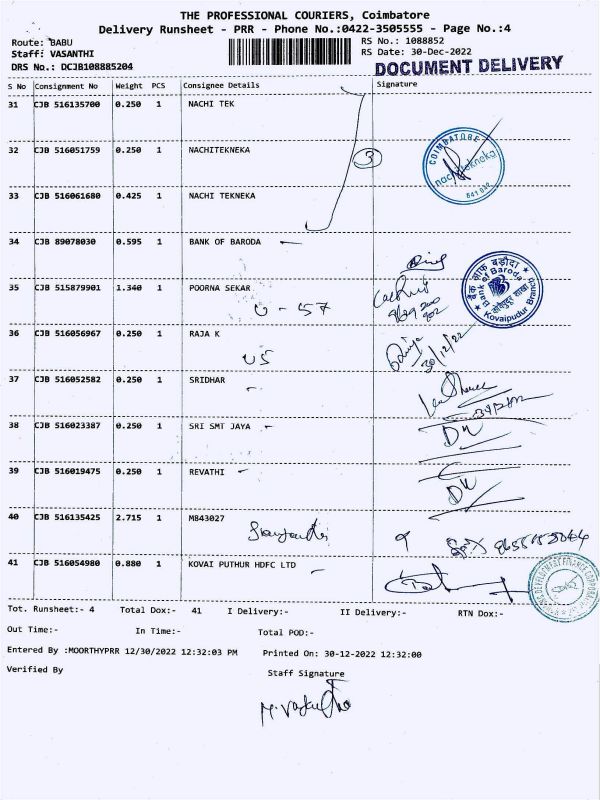 THE PROFESSIONAL COURIERS, Coimbatore
Delivery Runsheet - PRR - Phone No.:0422-3505555 - Page No.:4
Route: BABU
RS No.: 1088852
Staff: VASANTHI
RS Date: 30-Dec-2022
DRS No.: DCJB108885204
DOCUMENT DELIVERY
S No Consignment No Weight PCS Consignee Details Signature
31 CJB 516135700 0.250 1 NACHI TEK
32 CJB 516051759 0.250 1 NACHITEKNEKA
3
COIMBATORE
nachitekneka
33 CJB 516061680 0.425 1 NACHI TEKNEKA
34 CJB 89078030 0.595 1 BANK OF BARODA
बैंक ऑफ़ बड़ौदा
Bank of Baroda
Kovaipudur Branch
35 CJB 515879901 1.340 1 POORNA SEKAR
U - 57
36 CJB 516056967 0.250 1 RAJA K
U5
30/12/22
37 CJB 516052582 0.250 1 SRIDHAR
38 CJB 516023387 0.250 1 SRI SMT JAYA
39 CJB 516019475 0.250 1 REVATHI
40 CJB 516135425 2.715 1 M843027
41 CJB 516054980 0.880 1 KOVAI PUTHUR HDFC LTD
Tot. Runsheet:- 4 Total Dox:- 41 I Delivery:- II Delivery:- RTN Dox:-
Out Time:- In Time:- Total POD:-
Entered By :MOORTHYPRR 12/30/2022 12:32:03 PM Printed On: 30-12-2022 12:32:00
Verified By Staff Signature